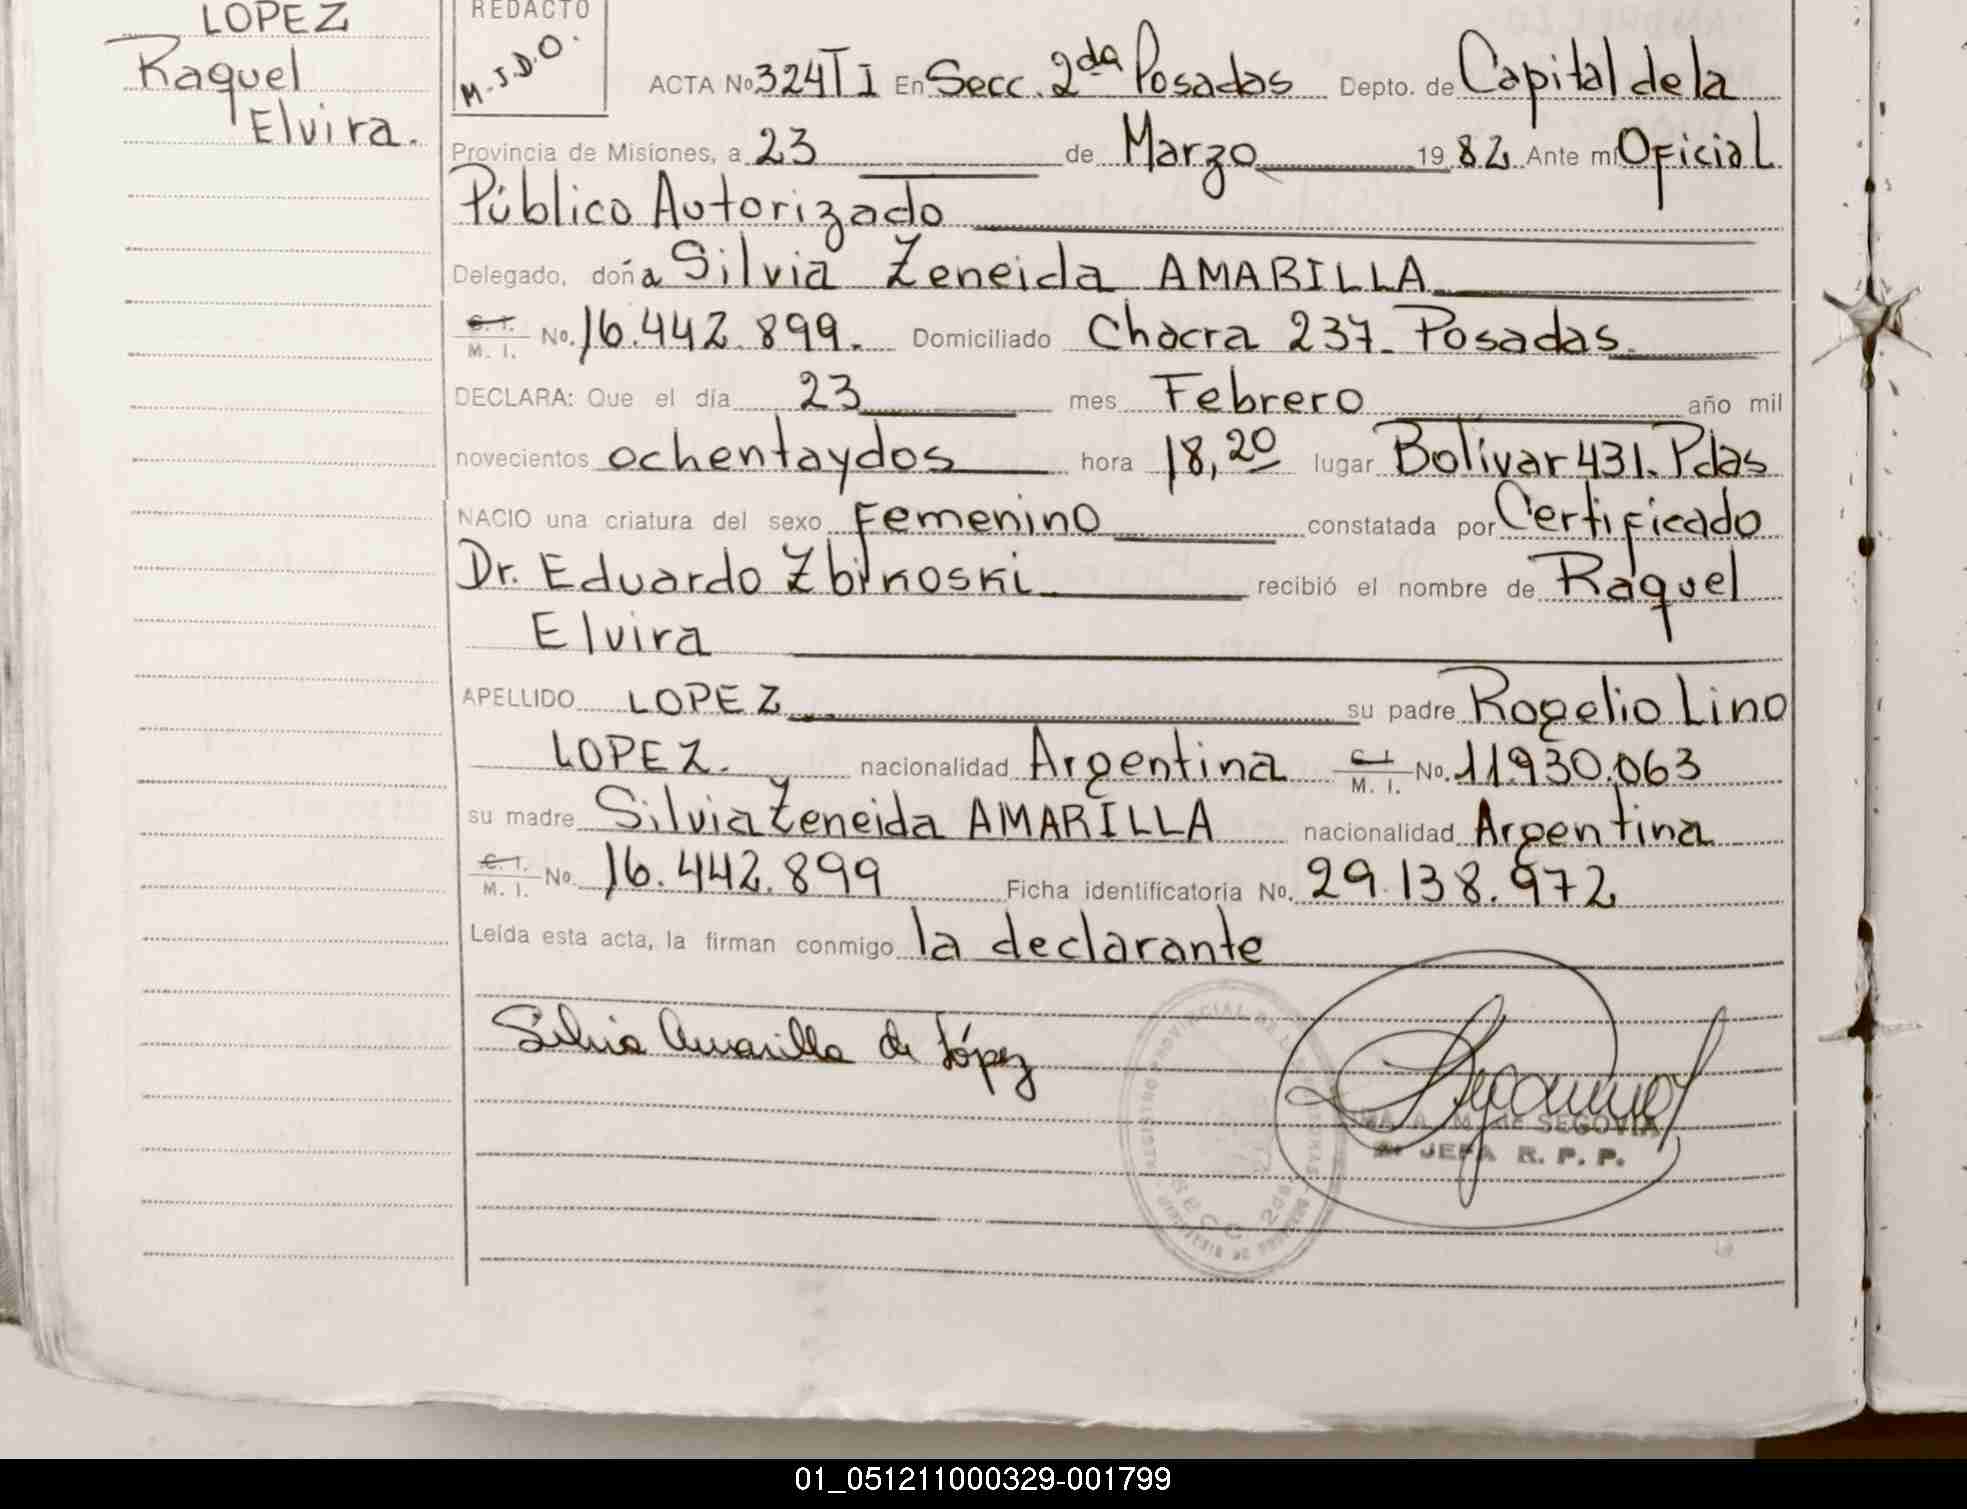 LOPEZ
Raquel
Elvira.
REDACTO
M.J.D.O.
ACTA No 324 T I En Secc. 2da Posadas Depto. de Capital de la
Provincia de Misiones, a 23 de Marzo 19 82 Ante mi Oficial
Público Autorizado
Delegado, doña Silvia Zeneida AMARILLA
C. I. M. I. No. 16.442.899. Domiciliado Chacra 237. Posadas.
DECLARA: Que el día 23 mes Febrero año mil
novecientos ochentaydos hora 18,20 lugar Bolívar 431. Pdas
NACIO una criatura del sexo Femenino constatada por Certificado
Dr. Eduardo recibió el nombre de Raquel
Elvira
APELLIDO LOPEZ su padre Rogelio Lino
LOPEZ. nacionalidad Argentina C. I. M. I. No. 11.930.063
su madre Silvia Zeneida AMARILLA nacionalidad Argentina
C. I. M. I. No. 16.442.899 Ficha identificatoria No. 29.138.972
Leída esta acta, la firman conmigo la declarante
Silvia Amarilla de López
REGISTRO PROVINCIAL DE LAS PERSONAS
SECC. 2da
A. M. de SEGOVIA
JEFA R. P. P.
01_051211000329-001799